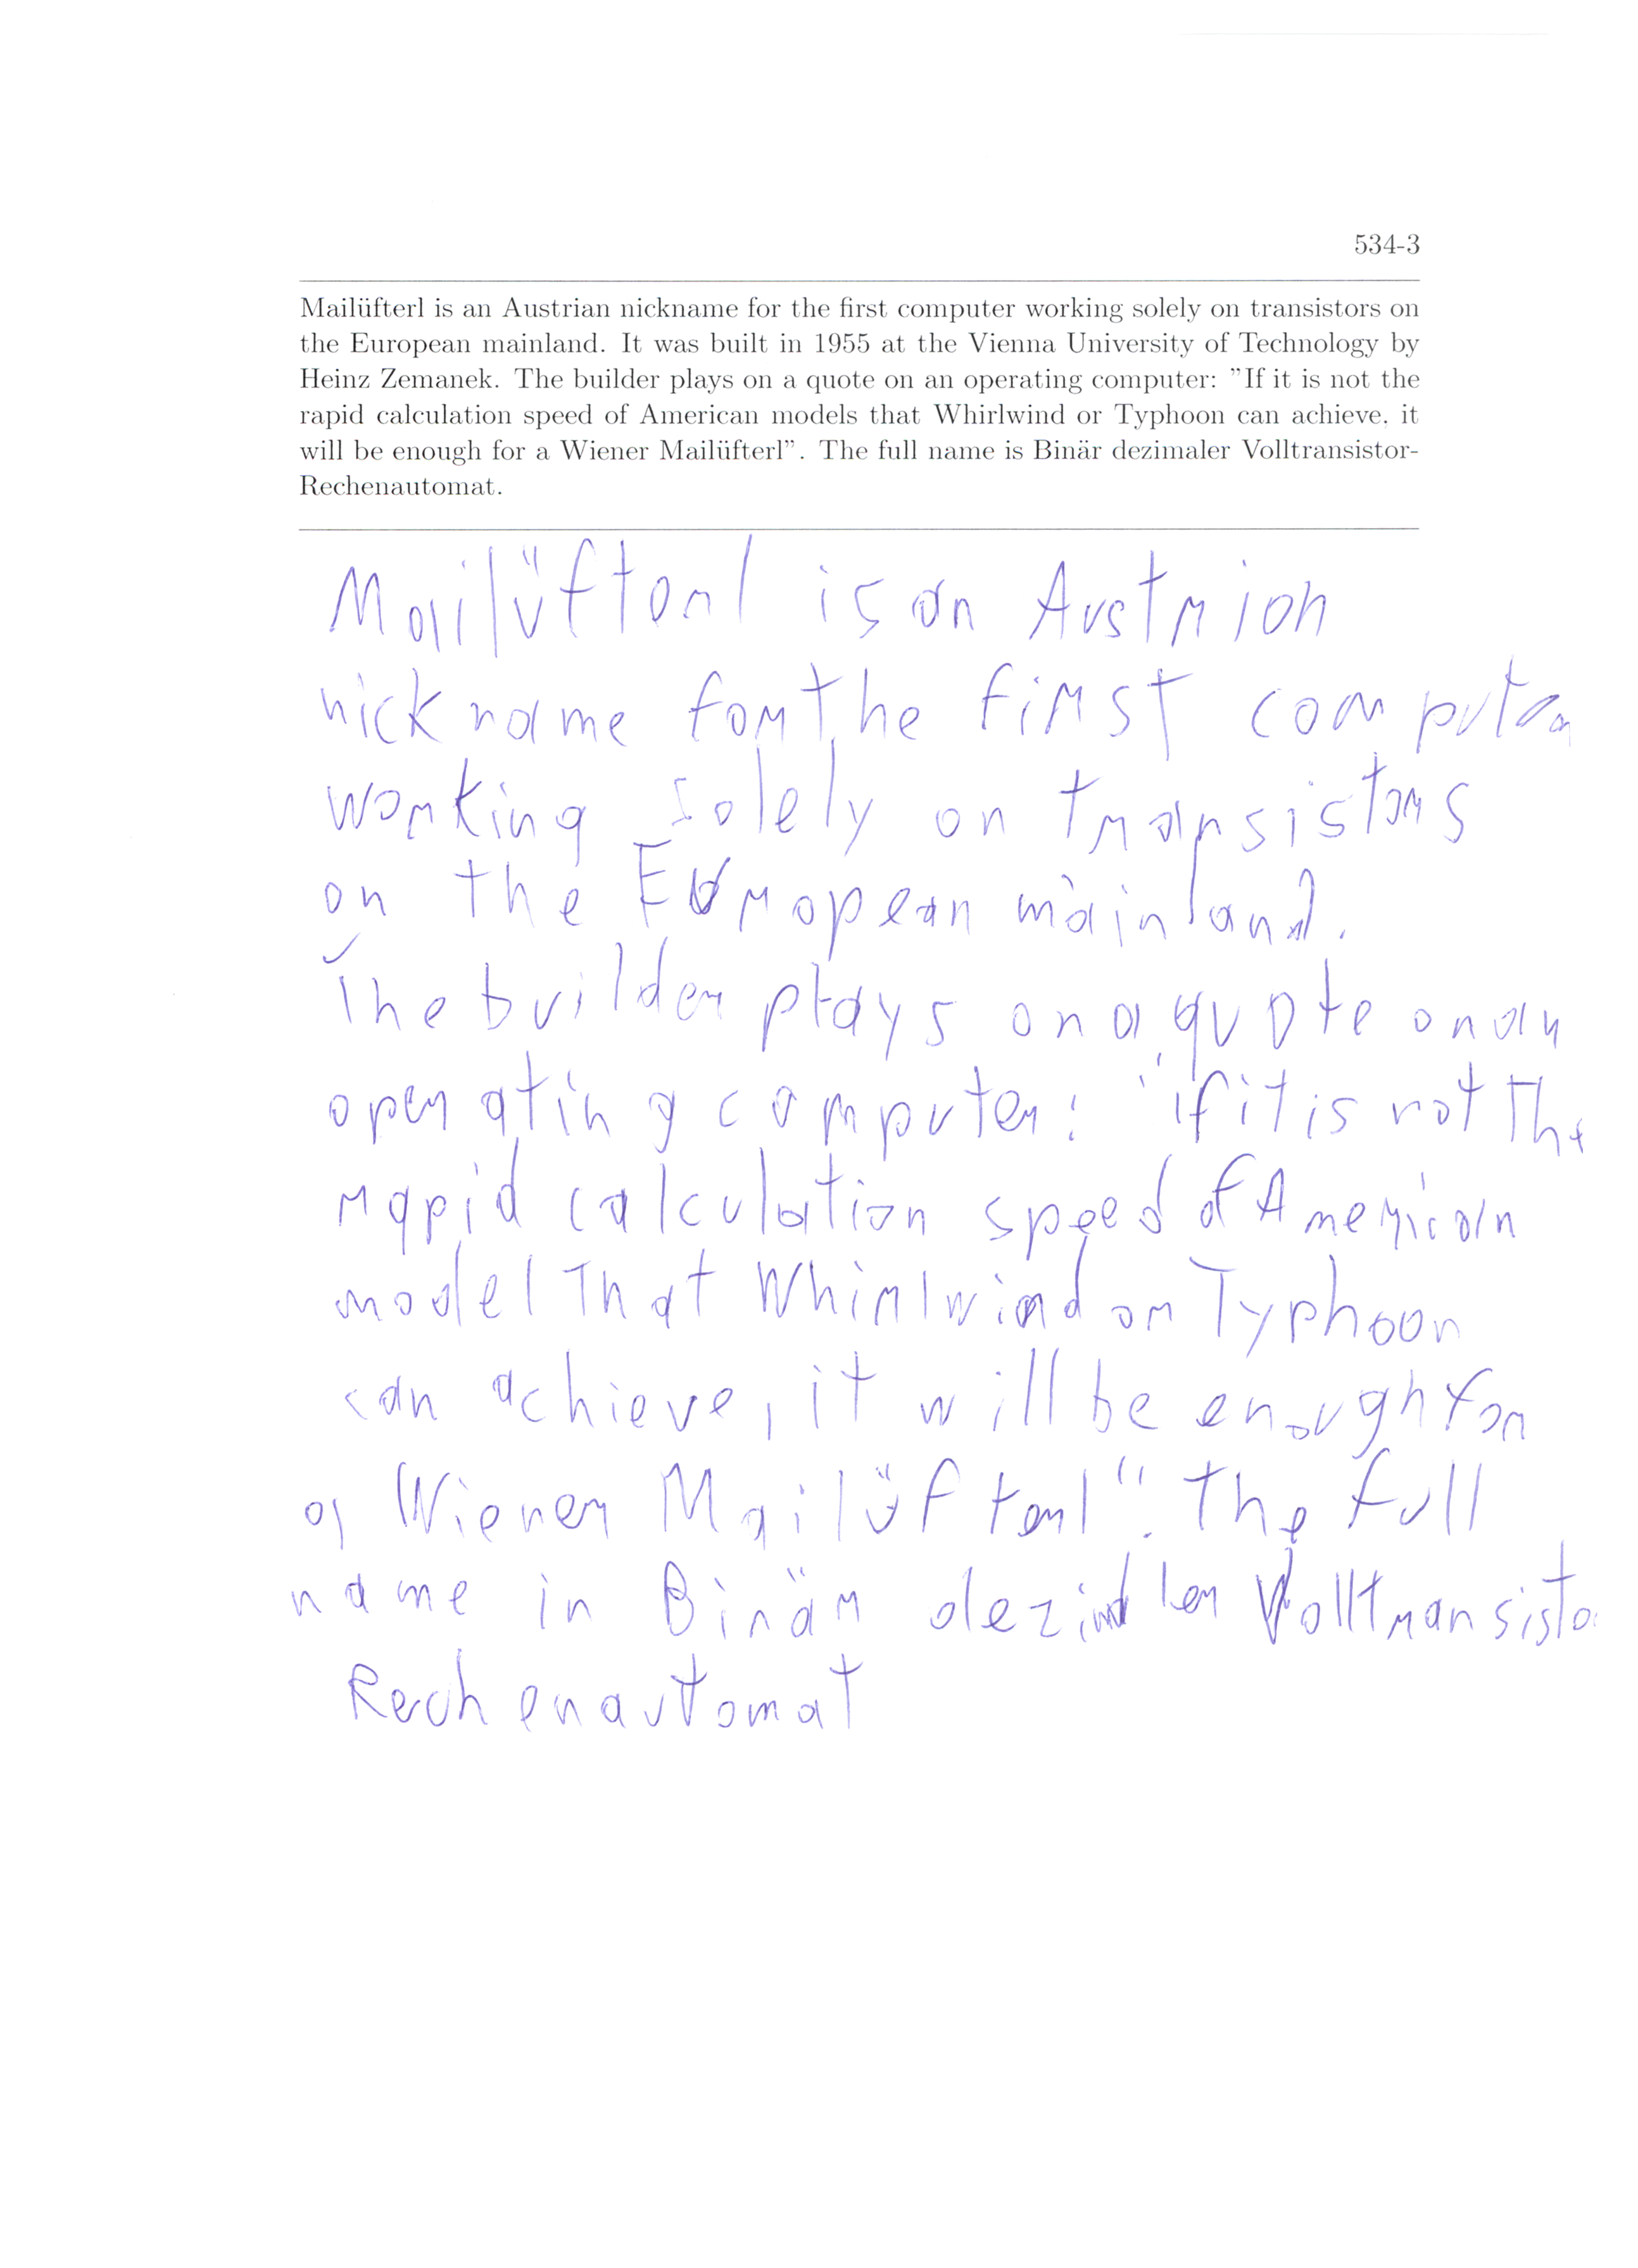 534-3
Mailüfterl is an Austrian nickname for the first computer working solely on transistors on
the European mainland. It was built in 1955 at the Vienna University of Technology by
Heinz Zemanek. The builder plays on a quote on an operating computer: "If it is not the
rapid calculation speed of American models that Whirlwind or Typhoon can achieve, it
will be enough for a Wiener Mailüfterl". The full name is Binär dezimaler Volltransistor-
Rechenautomat.
Mailüfterl is an Austrian
nickname for the first computer
working solely on transistors
on the European mainland.
The builder plays on a quote on an
operating computer: "if it is not the
rapid calculation speed of American
model that Whirlwind or Typhoon
can achieve, it will be enough for
a Wiener Mailüfterl". The full
name in Binär Volltransisto
Rechenautomat